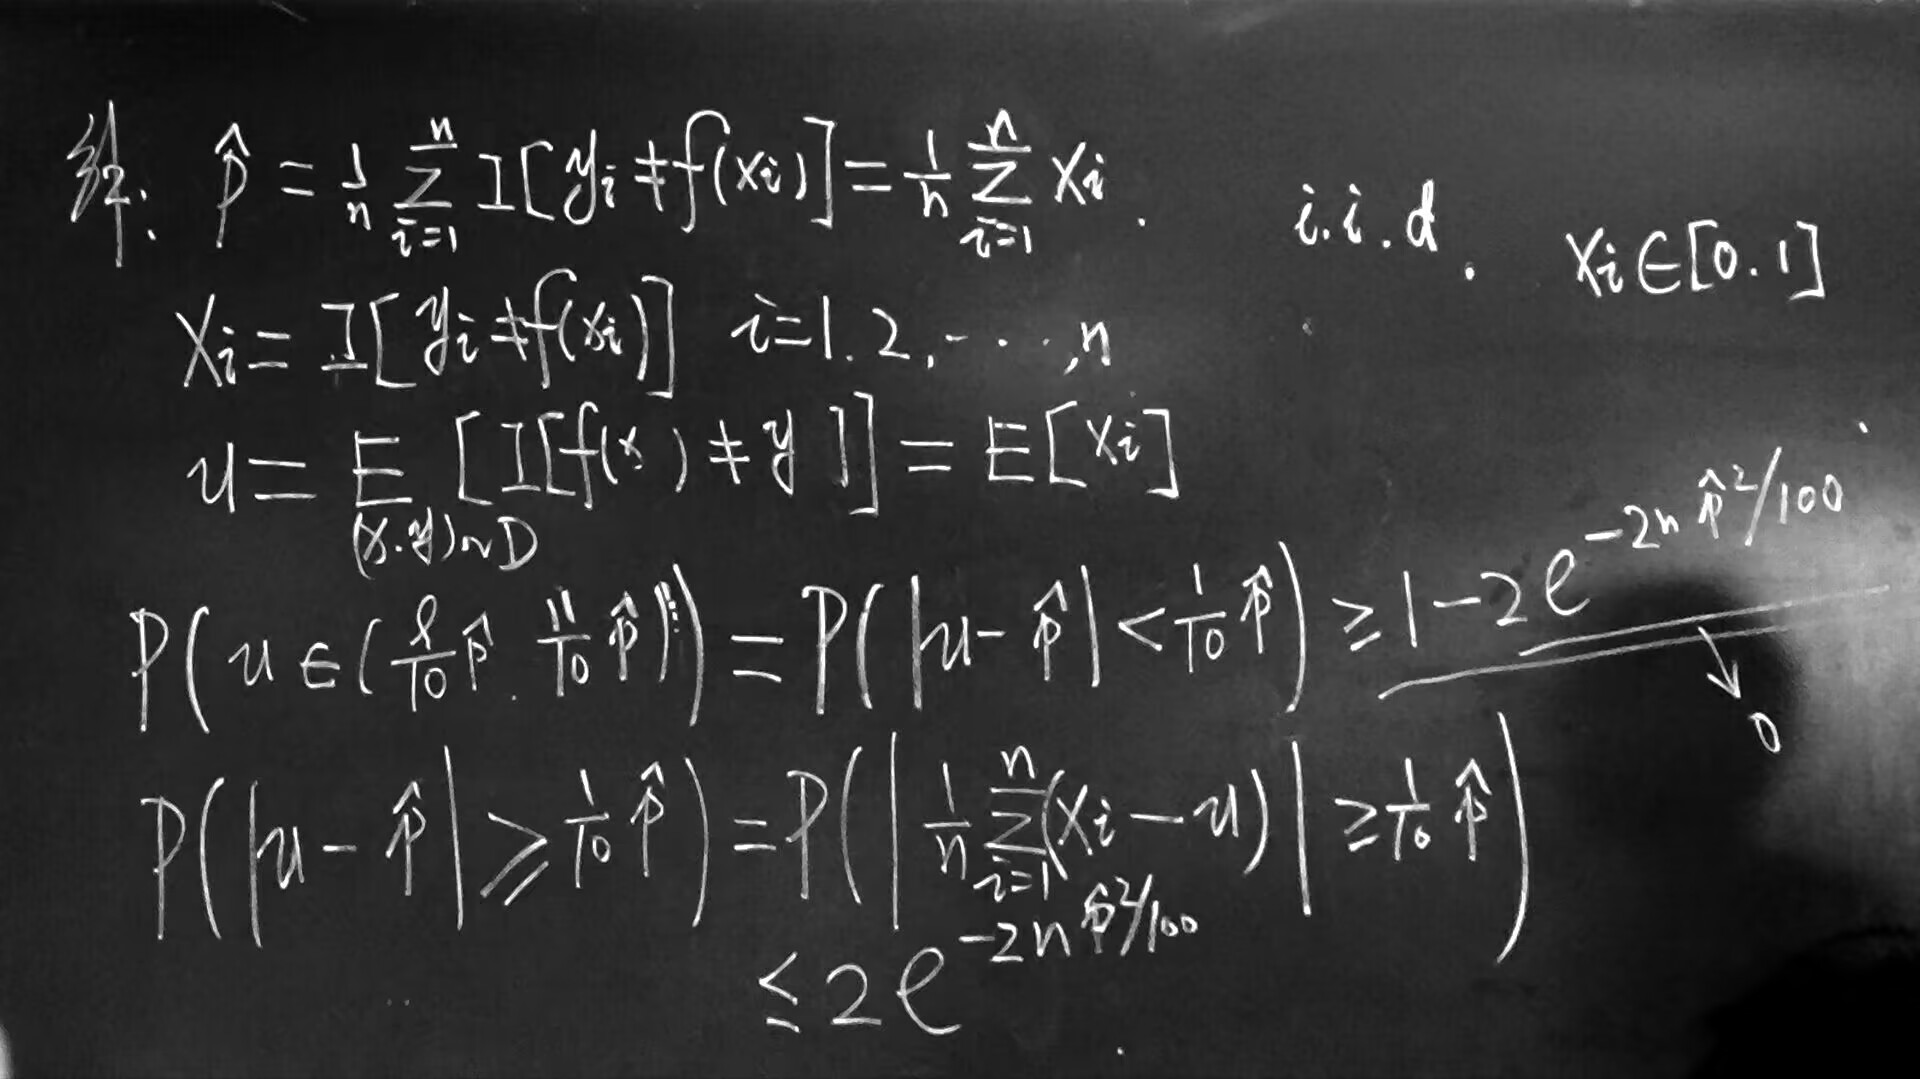 解: p̂ = 1/n ∑_{i=1}^{n} I[y_i ≠ f(x_i)] = 1/n ∑_{i=1}^{n} X_i. i.i.d. X_i ∈ [0.1]
X_i = I[y_i ≠ f(x_i)] i=1.2,...,n
u = E_{(x.y)~D} [I[f(x) ≠ y]] = E[X_i]
P(u ∈ (9/10 p̂. 11/10 p̂)) = P(|u - p̂| < 1/10 p̂) ≥ 1 - 2e^{-2n p̂²/100}
↘ 0
P(|u - p̂| ≥ 1/10 p̂) = P(|1/n ∑_{i=1}^{n} (X_i - u)| ≥ 1/10 p̂)
≤ 2e^{-2n p̂²/100}